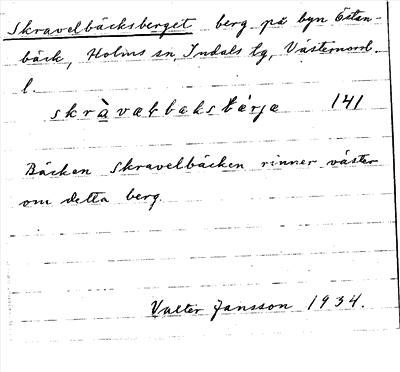 Skravelbäcksberget berg på byn Östan-
bäck, Holms sn, Indals tg, Västernorrl.
l.
skràvabbaksbærjə 141
Bäcken Skravelbäcken rinner väster
om detta berg.
Valter Jansson 1934.